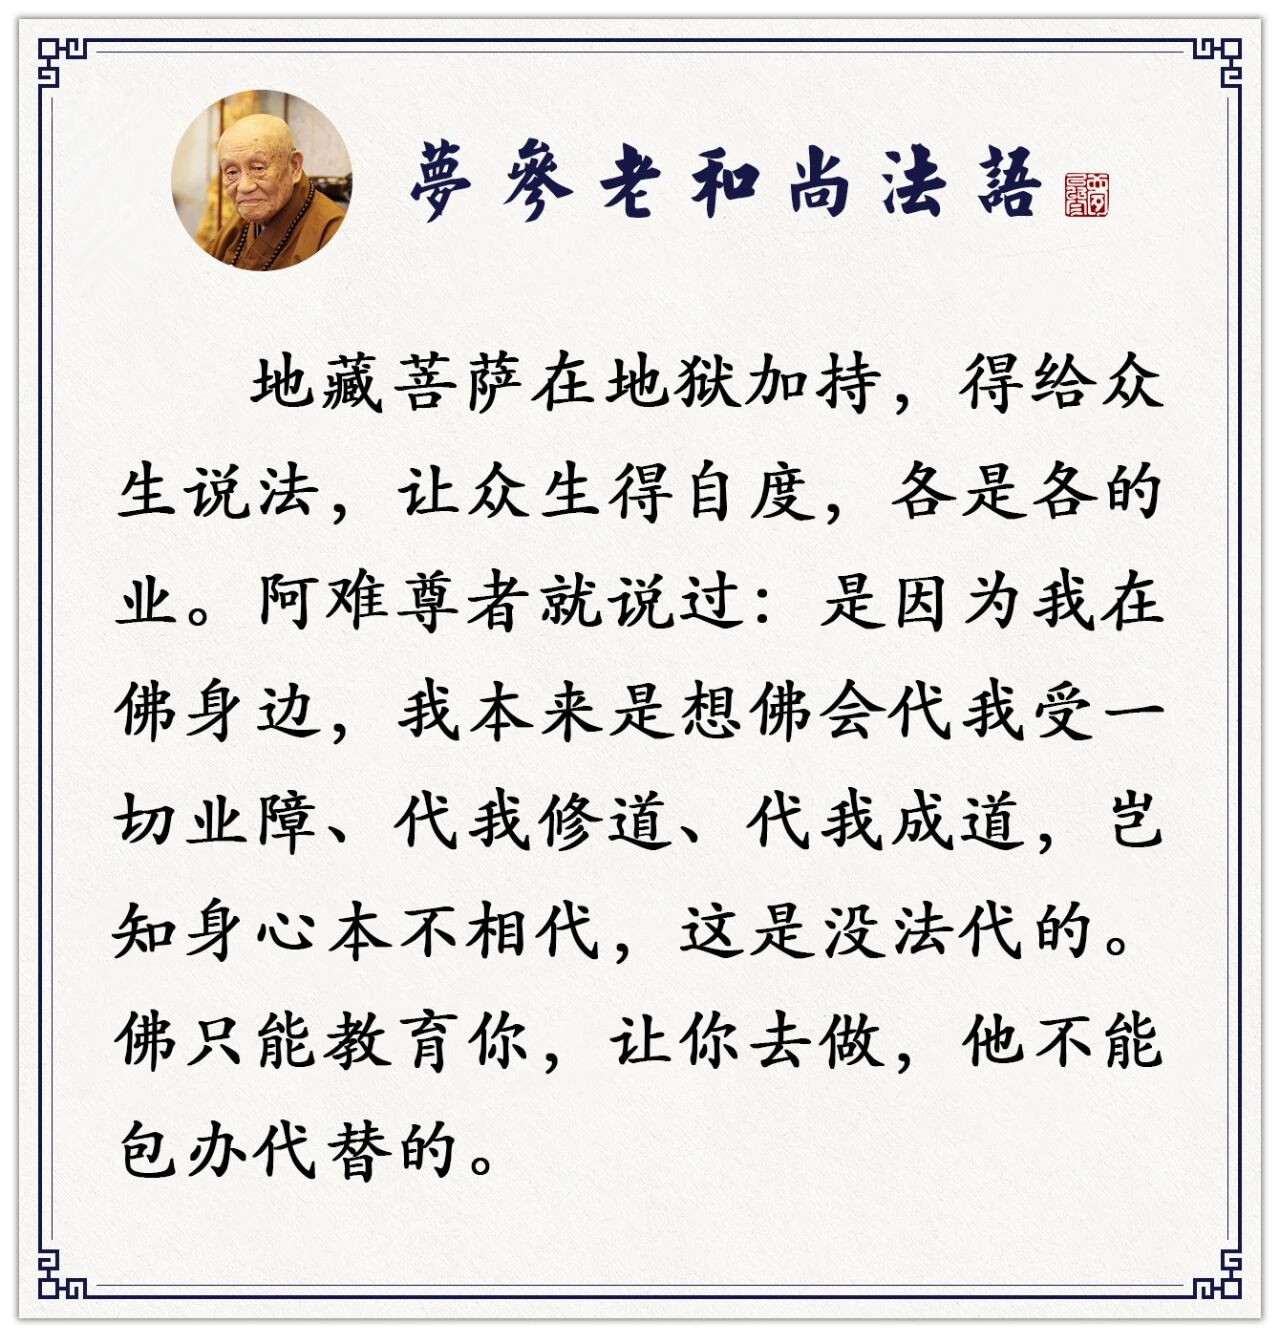 夢參老和尚法語
地藏菩萨在地狱加持，得给众
生说法，让众生得自度，各是各的
业。阿难尊者就说过：是因为我在
佛身边，我本来是想佛会代我受一
切业障、代我修道、代我成道，岂
知身心本不相代，这是没法代的。
佛只能教育你，让你去做，他不能
包办代替的。